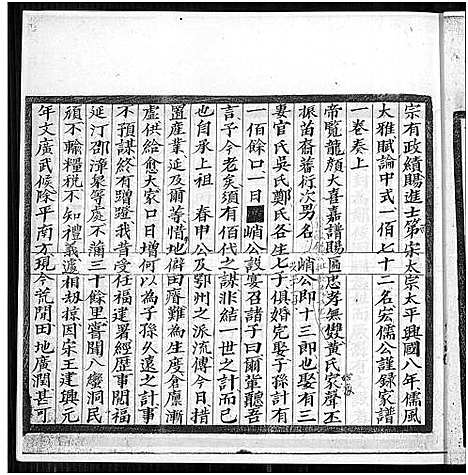 宗有政績賜進士第宋太宗太平興國八年儒風
大雅賦論中式一佰七十二名宏儒公謹錄家譜
一卷奏上
帝覧龍顏大喜嘉譜賜匾忠孝無雙黃氏家聲丕
振苗裔蕃衍次男名峭公即十三郎也娶有三
妻官氏吳氏鄭氏各生七子俱婚完娶子孫計有
一佰餘口一日峭公設宴召諸子曰爾輩聽吾
言予今老矣須有佰代之謀非結一世之計而已
也自承上祖春申公及鄂州之派流傳今日措
置產業延及爾等惜地僻田瘠難為生度倉廩漸
虛供給愈大家口日增何以為子孫久遠之計事
不預謀終有蹭蹬我昔受任福建署經歷事聞福
延汀邵漳泉等處不滿三十餘里嘗聞八蠻洞民
頑不輸糧稅不知禮義遞相刼掠因宋王建興元
年文廣武候除平南方現今荒閒田地廣濶甚可